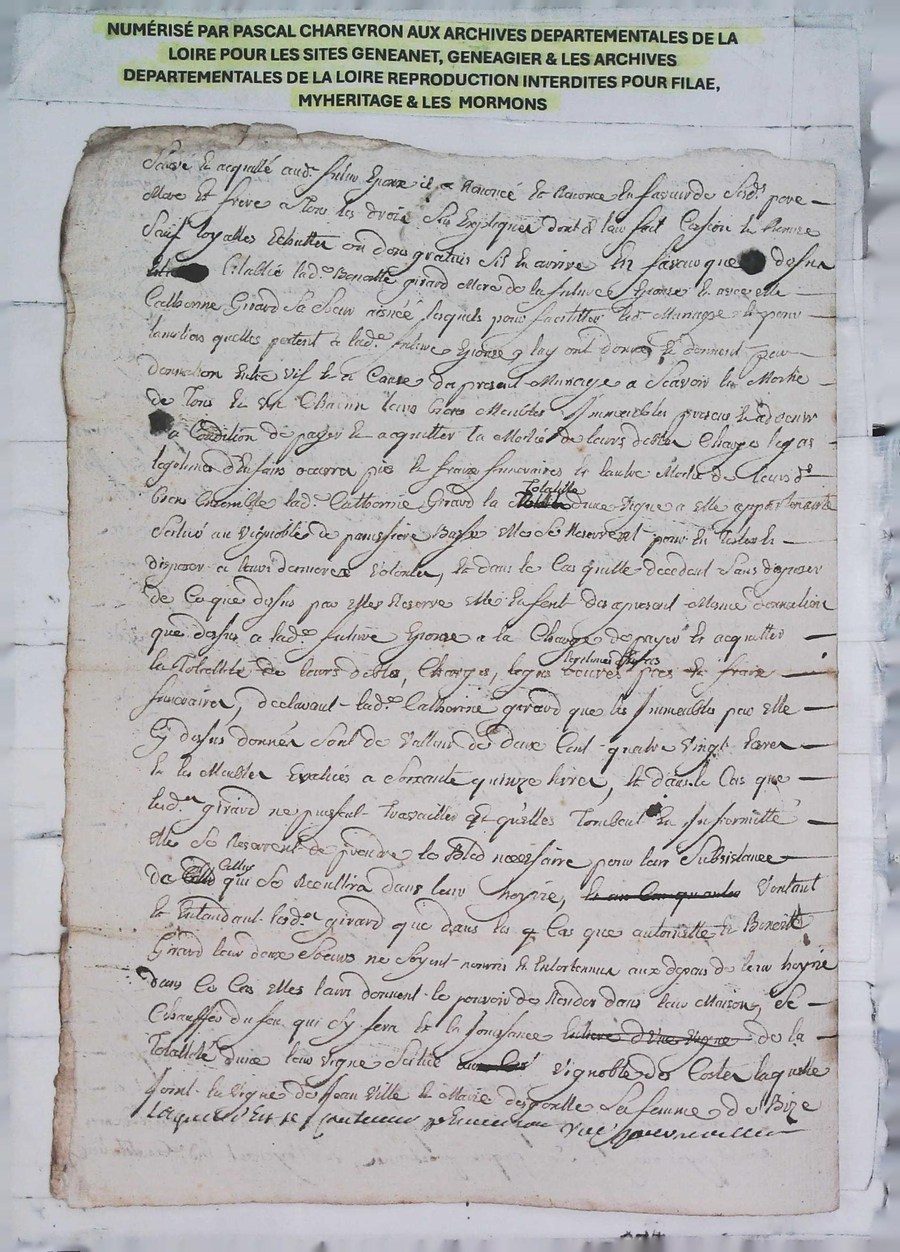 NUMÉRISÉ PAR PASCAL CHAREYRON AUX ARCHIVES DEPARTEMENTALES DE LA
LOIRE POUR LES SITES GENEANET, GENEAGIER & LES ARCHIVES
DEPARTEMENTALES DE LA LOIRE REPRODUCTION INTERDITES POUR FILAE,
MYHERITAGE & LES MORMONS
et acquitté aud. futur Epoux il a Renoncé et Renonce en faveur de Sesd. pere
Mere et frere a Tous les droits Sus Expliqués dont il leur fait Cession et Remise
Sauf loyalles Echuttes ou dons gratuis Sil en arrive En faveur que dessus
Establie lad. Benoitte girard Mere de la future Epouse et avec elle
Catherine Girard Sa Soeur lesquels pour facilitter led. Mariage et pour
lamitiée quelles portent a lad. future Epouse luy ont donné et donnent par
donnation Entre vif et a Cause du present Mariage a Scavoir la Moitié
de Tous et un Chacun leurs biens Meubles Immeubles presens et advenir
a Condition de payer et acquitter la Moitié de leurs debtes Charges legas
legitimes d'Enfans oeuvres pies et fraix funeraires et lautre Moitié de leurs d.
biens Ensemble lad. Catherine Girard la Totalitté dune vigne a elle appartenante
Scitué au vignoble de Elles Se Reservent pour En
disposer a leurs dernieres volontés, Et dans le Cas quelle decedent Sans disposer
de Ce que dessus par Elles Reservé Elle En font des apresent Mesme donnation
que dessus a lad. future Epouse a la Charge de payer et acquitter
la Totalitté de leurs debtes, Charges, legas legitimes d'Enfans oeuvres pies et fraix
funeraires, declarant lad. Catherine girard que les Immeubles par Elle
Cy dessus donnés Sont de valleur de deux Cent quatre vingt livres
Et les Meubles Evalués a Soixante quinze livres, Et dans le Cas que
lesd. girard ne pussent travailler et quelles Tombent En Infirmitté
Elle Se Reservent de prendre le Bled necessaire pour leur Subsistance
de Celluy qui Se Receullira dans leur hoyrie, voulant
Et Entendant lesd. girard que dans le Cas que antoinette et Benoitte
Girard leur deux Soeurs ne Soyent nourries Et Entretenues aux depens de leur hoyrie
dans Ce Cas Elles leurs donnent le pouvoir de Resider dans leur Maison, Se
Chauffer du feu qui Sy fera Et la Jouissance de la
Totalitté dune leur vigne Scitué vignoble de Costes laquelle
Joint la vigne de Jean ville Et Marie Sa femme de Bize